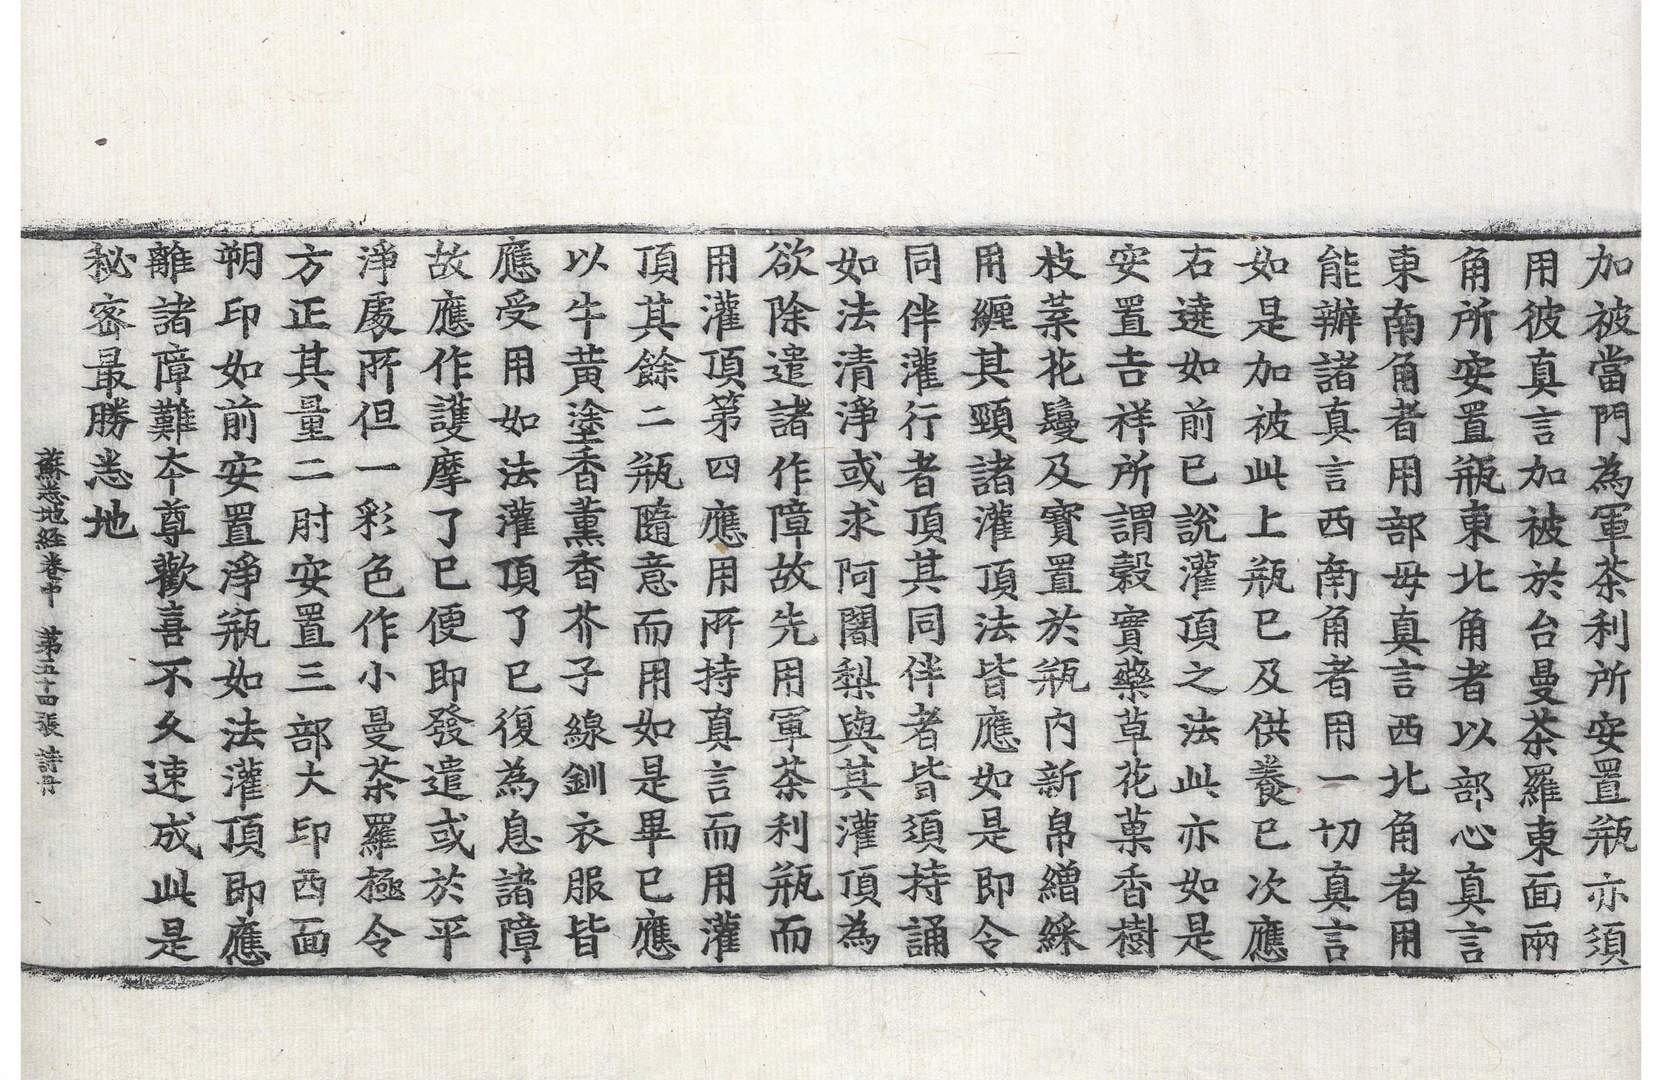 加被當門為軍茶利所安置瓶亦須
用彼真言加被於台曼茶羅東面兩
角所安置瓶東北角者以部心真言
東南角者用部母真言西北角者用
能辦諸真言西南角者用一切真言
如是加被此上瓶已及供養已次應
右遶如前已說灌頂之法此亦如是
安置吉祥所謂穀實藥草花菓香樹
枝葉花鬘及寶置於瓶內新帛繒綵
用纏其頸諸灌頂法皆應如是即令
同伴灌行者頂其同伴者皆須持誦
如法清淨或求阿闍梨與其灌頂為
欲除遣諸作障故先用軍茶利瓶而
用灌頂第四應用所持真言而用灌
頂其餘二瓶隨意而用如是畢已應
以牛黃塗香薰香芥子線釧衣服皆
應受用如法灌頂了已復為息諸障
故應作護摩了已便即發遣或於平
淨處所但一彩色作小曼茶羅極令
方正其量二肘安置三部大印西面
朔印如前安置淨瓶如法灌頂即應
離諸障難夲尊歡喜不久速成此是
秘密最勝悉地
蘇悉地經卷中 第五十四張 詩冊